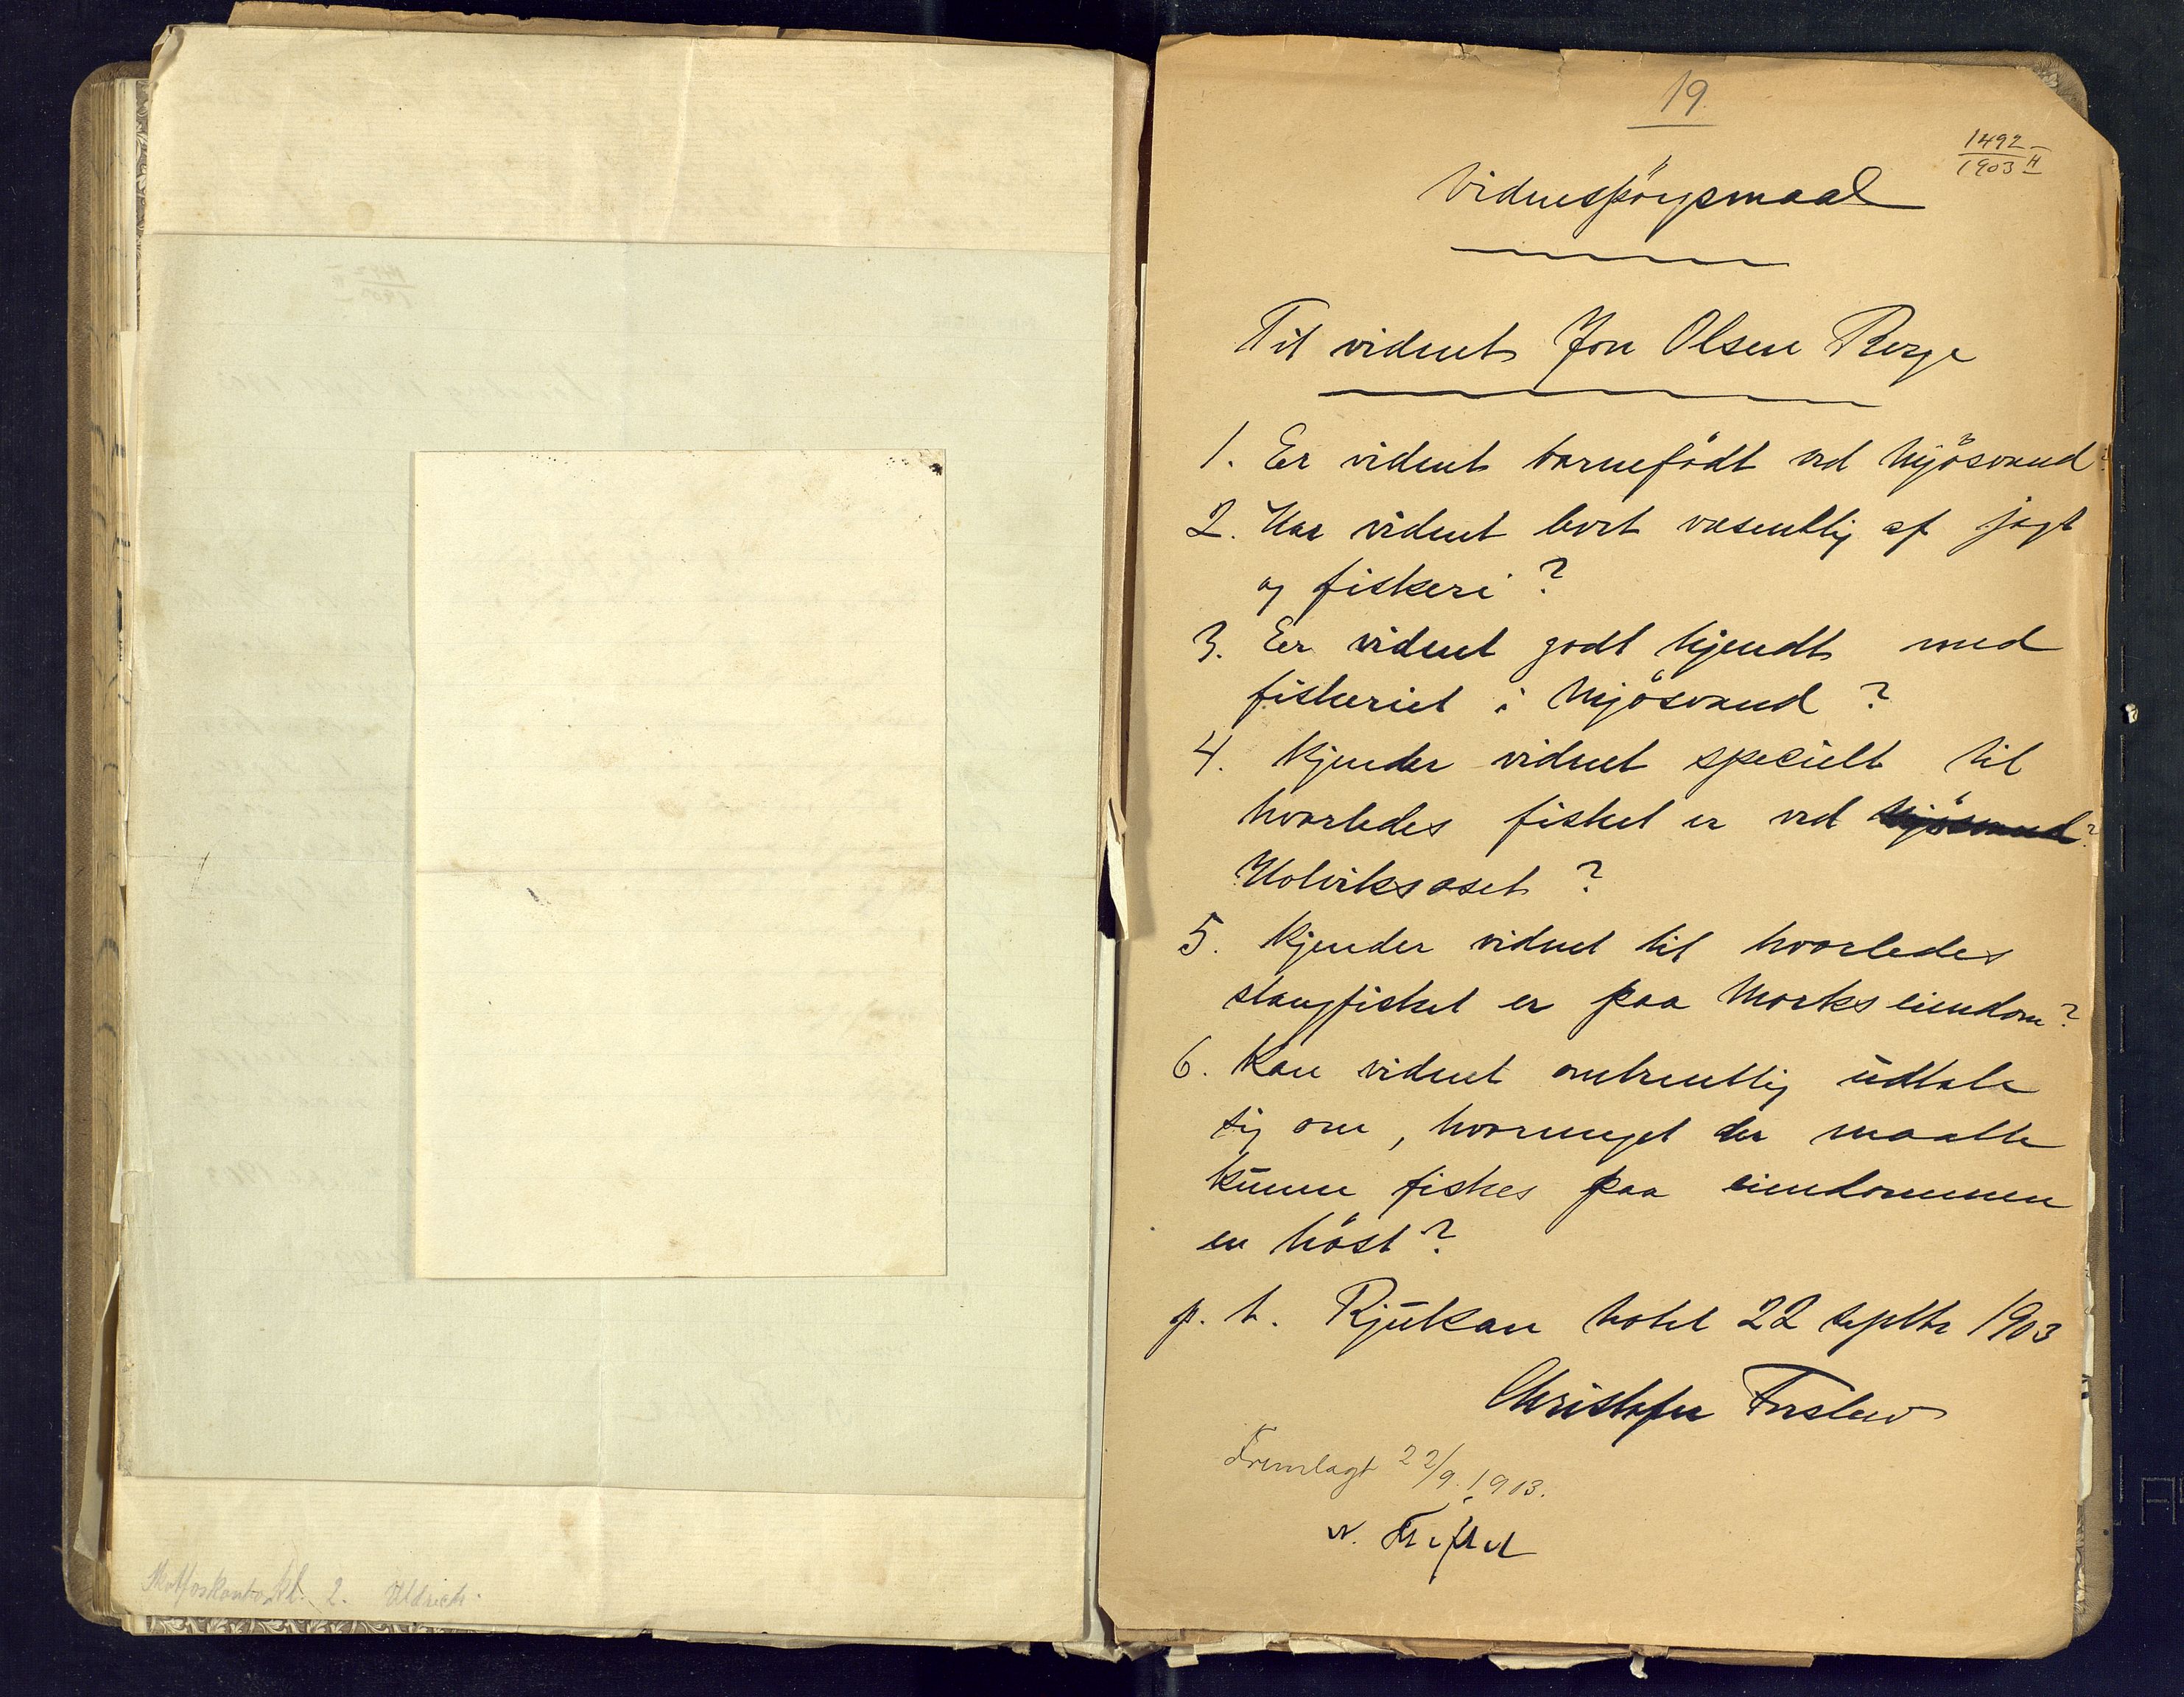 19.
1492
1903 H
Vidnespörgsmaal
Til vidnet Jon Olsen Berge
1. Er vidnet barnefödt ved Mjösvand?
2. Har vidnet levet væsentlig af jagt
og fiskeri?
3. Er vidnet godt kjendt med
fiskeriet i Mjösvand?
4. Kjender vidnet specielt til
hvorledes fisket er ved Mjösvand?
Holviksoset?
5. Kjender vidnet til hvorledes
stangfisket er paa Morks eiendom?
6. Kan vidnet omtrentlig udtale
sig om, hvormeget der maatte
kunne fiskes paa eiendommen
en höst?
p. t. Rjukan hotel 22 septbr 1903
Christofer
Fremlagt 22/9. 1903.
kl. 2.